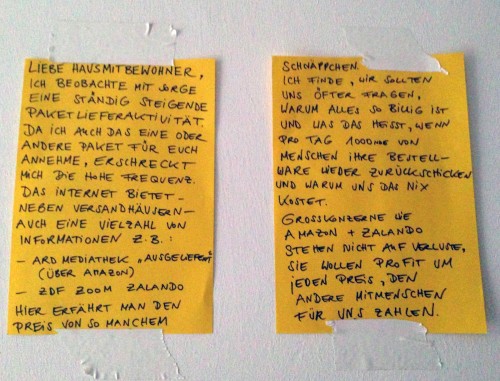 LIEBE HAUSMITBEWOHNER,
ICH BEOBACHTE MIT SORGE
EINE STÄNDIG STEIGENDE
PAKETLIEFERAKTIVITÄT.
DA ICH AUCH DAS EINE ODER
ANDERE PAKET FÜR EUCH
ANNEHME, ERSCHRECKT
MICH DIE HOHE FREQUENZ.
DAS INTERNET BIETET -
NEBEN VERSANDHÄUSERN -
AUCH EINE VIELZAHL VON
INFORMATIONEN Z.B.:
- ARD MEDIATHEK „AUSGELIEFERT"
(ÜBER AMAZON)
- ZDF ZOOM ZALANDO
HIER ERFÄHRT MAN DEN
PREIS VON SO MANCHEM
SCHNÄPPCHEN.
ICH FINDE, WIR SOLLTEN
UNS ÖFTER FRAGEN,
WARUM ALLES SO BILLIG IST
UND WAS DAS HEISST, WENN
PRO TAG 1000nde VON
MENSCHEN IHRE BESTELL-
WARE WIEDER ZURÜCKSCHICKEN
UND WARUM UNS DAS NIX
KOSTET.
GROSSKONZERNE WIE
AMAZON + ZALANDO
STEHEN NICHT AUF VERLUSTE,
SIE WOLLEN PROFIT UM
JEDEN PREIS, DEN
ANDERE MITMENSCHEN
FÜR UNS ZAHLEN.